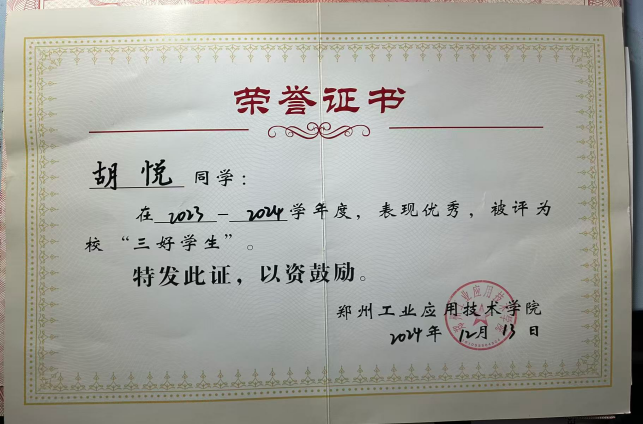 荣誉证书
胡悦 同学：
在 2023－2024 学年度，表现优秀，被评为
校“三好学生”。
特发此证，以资鼓励。
郑州工业应用技术学院
2024年 12月 13日